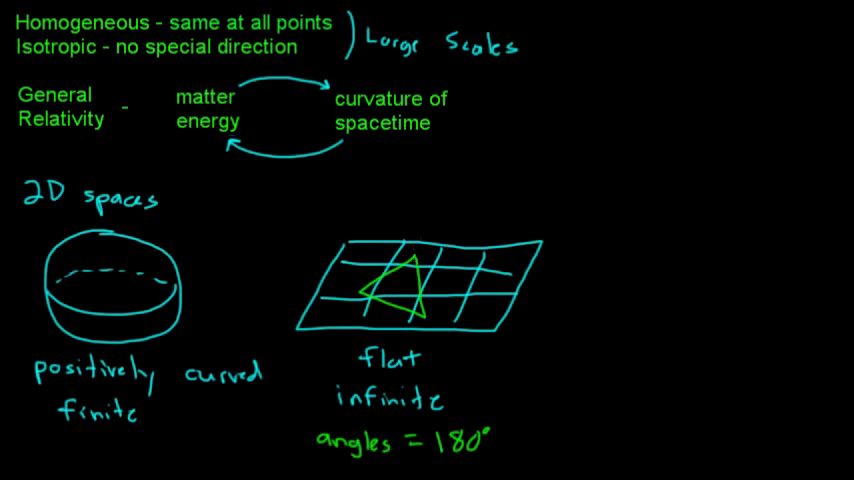 Homogeneous - same at all points
Isotropic - no special direction
Large Scales
General Relativity - matter energy
curvature of spacetime
2D spaces
positively curved
finite
flat
infinite
angles = 180°